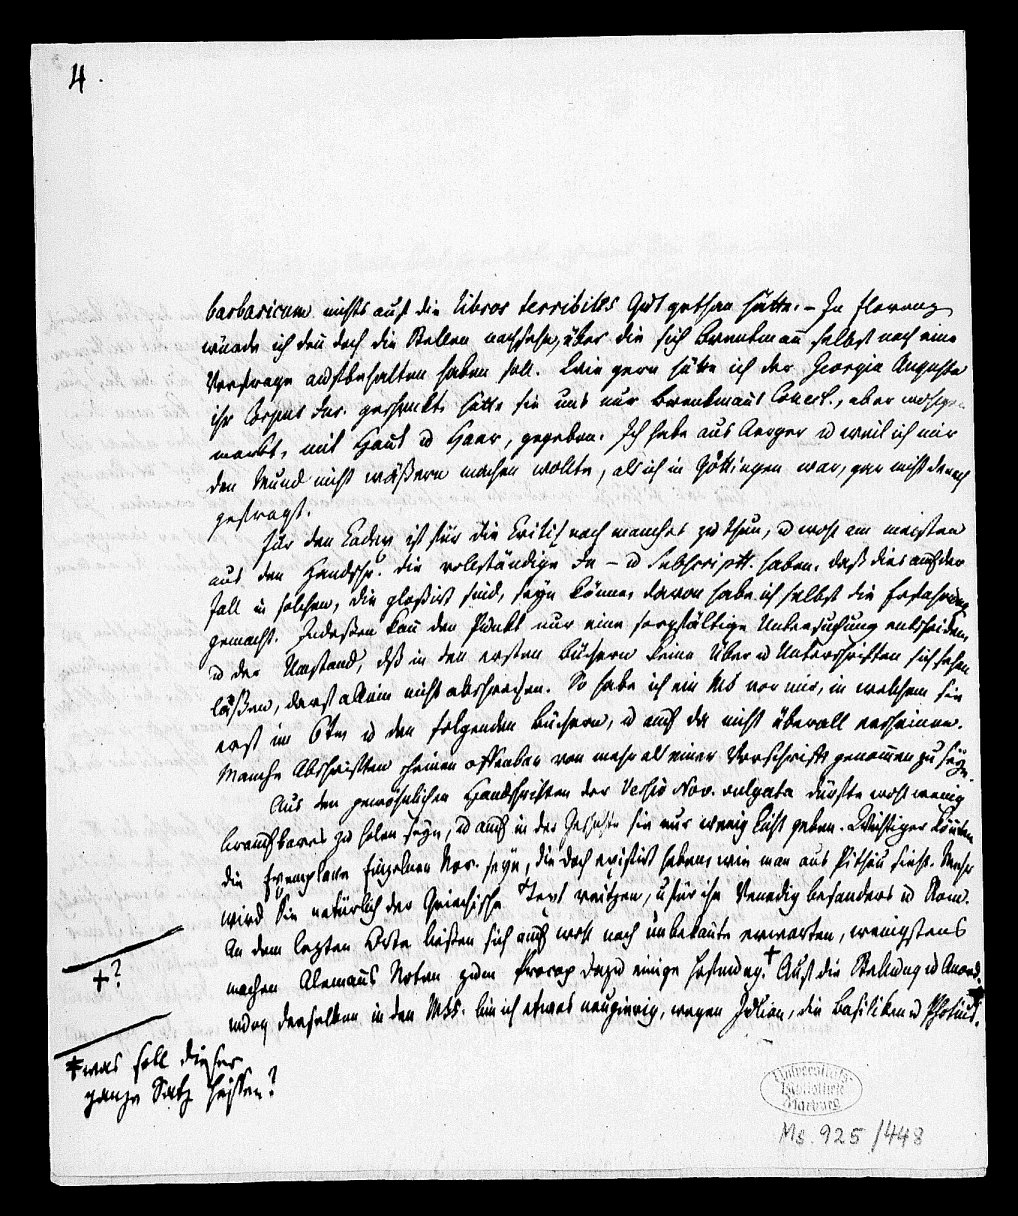 4.
barbaricum nichts auf die libros terribiles Gut gethan hätte. – In Florenz
würde ich den doch die Stellen nachsehn, über die sich Brenkman selbst noch eine
Nachfrage aufbehalten haben soll. Wie gern hätte ich der Georgia Augusta
ihr Corpus Jur. geschenkt, hätte sie uns nur Brenkmans Collect., aber wohlge-
merkt, mit Haut u Haar, gegeben. Ich habe aus Aerger u weil ich mir
den Mund nicht wäßern machen wollte, als ich in Göttingen war, gar nicht darnach
gefragt.
Für den Codex ist für die Critik noch manches zu thun, u wohl am meisten
aus den Handschr. die vollständige In- u Subscriptt. haben. daß dies auch der
Fall in solchen, die gloßirt sind, seyn könne, davon habe ich selbst die Erfahrung
gemacht. Indeßen kan den Punkt nur eine sorgfältige Untersuchung entscheiden,
u der Umstand, dß in den ersten Büchern keine Über u Unterschriften sich sehen
laßen, darf allein nicht abschrecken. So habe ich ein MS vor mir, in welchem sie
erst im 6ten u den folgenden Büchern, u auch da nicht überall erscheinen.
Manche Abschriften scheinen offenbar von mehr als einer Vorschrift genommen zu seyn.
Aus den gewöhnlichen Handschriften der Versio Nov. vulgata dürfte wohl wenig
brauchbares zu holen seyn, u auch in der Geschichte sie nur wenig Licht geben. Wichtiger könnten
die Exemplare einzelner Nov. seyn, die doch existirt haben, wie man aus Pithou sieht. Mehr
wird Sie natürlich der Griechische Text reitzen, u für ihn Venedig besonders u Rom.
An dem lezten Orte ließen sich auch wohl noch unbekante erwarten, wenigstens
machen Alemans Noten zum Procop dazu einige Hofnung.+ Auf die Stellung u Anord-
nung derselben in den MSS. bin ich etwas neugierig, wegen Julian, die Basiliken u Photius.
+?
*was soll dieser
ganze Satz heißen?
Universitäts-
Bibliothek
Marburg
Ms. 925/448